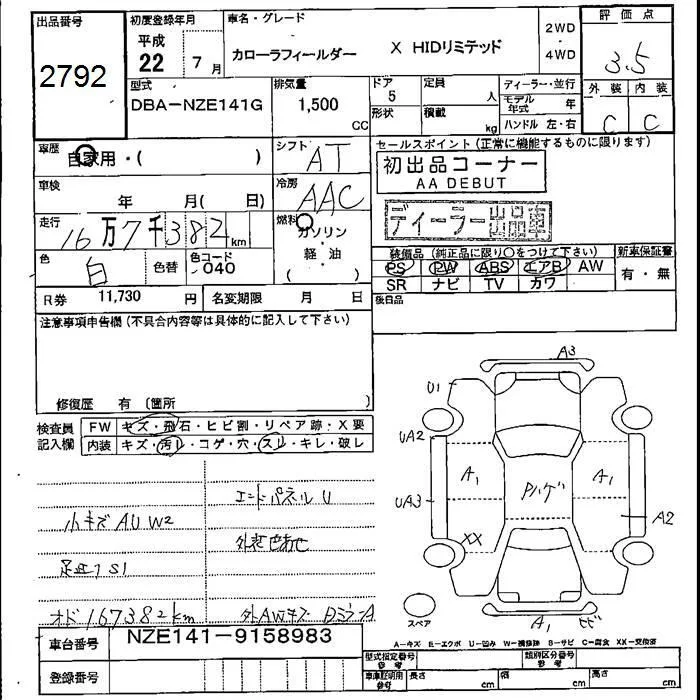 出品番号 初度登録年月 車名・グレード 2WD 評価点
平成 4WD 3.5
2792 22 7月 カローラフィールダー X HIDリミテッド
型式 排気量 ドア 定員 ディーラー・並行 外装 内装
DBA-NZE141G 1,500 CC 5 人 モデル年式 年 C C
形状 積載 kg ハンドル 左・右
車歴 自家用・( ) シフト AT セールスポイント(正常に機能するものに限ります)
初出品コーナー
AA DEBUT
車検 年 月( 日) 冷房 AAC
ディーラー出品車
走行 16万7千382km 燃料 ガソリン
軽・油
( )
色 白 色替 色コード 040
装備品(純正品に限り○をつけて下さい) 新車保証書
PS PW ABS エアB AW 有・無
SR ナビ TV カワ
R券 11,730円 名変期限 月 日 後日品
注意事項申告欄(不具合内容等は具体的に記入して下さい)
修復歴 有 (箇所 )
検査員記入欄 FW キズ・飛石・ヒビ割・リペア跡・X要
内装 キズ・汚レ・コゲ・穴・スレ・キレ・破レ
A3
U1
UA2
UA3
A1 Pハゲ A1
A2
XX
A1 ヒビ
スペア
エンドパネルU
小キズAUW2
外装色あせ
オド167382km 外AWキズ
A-キズ E-エクボ U-凹み W-補修跡 B-サビ C-腐食 XX-交換済
車台番号 NZE141-9158983
登録番号
型式指定番号 参考 類別区分番号 参考
車庫証明用 参考 長さ cm 幅 cm 高さ cm